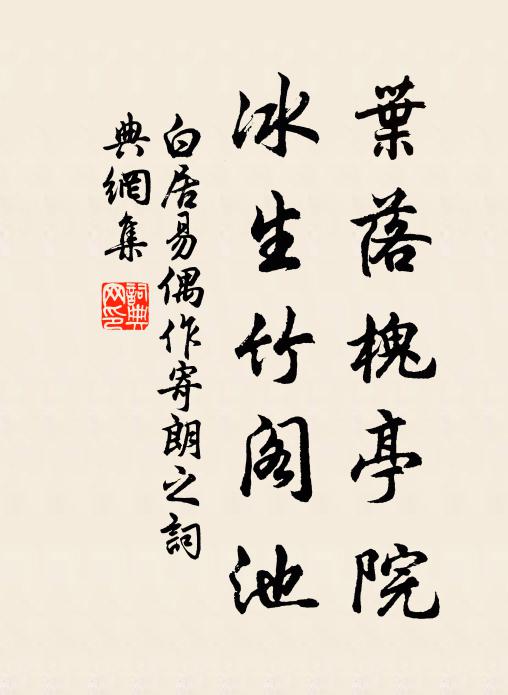 葉落槐亭院
冰生竹阁池
白居易偶作寄朗之詞
典網集
詞典网印